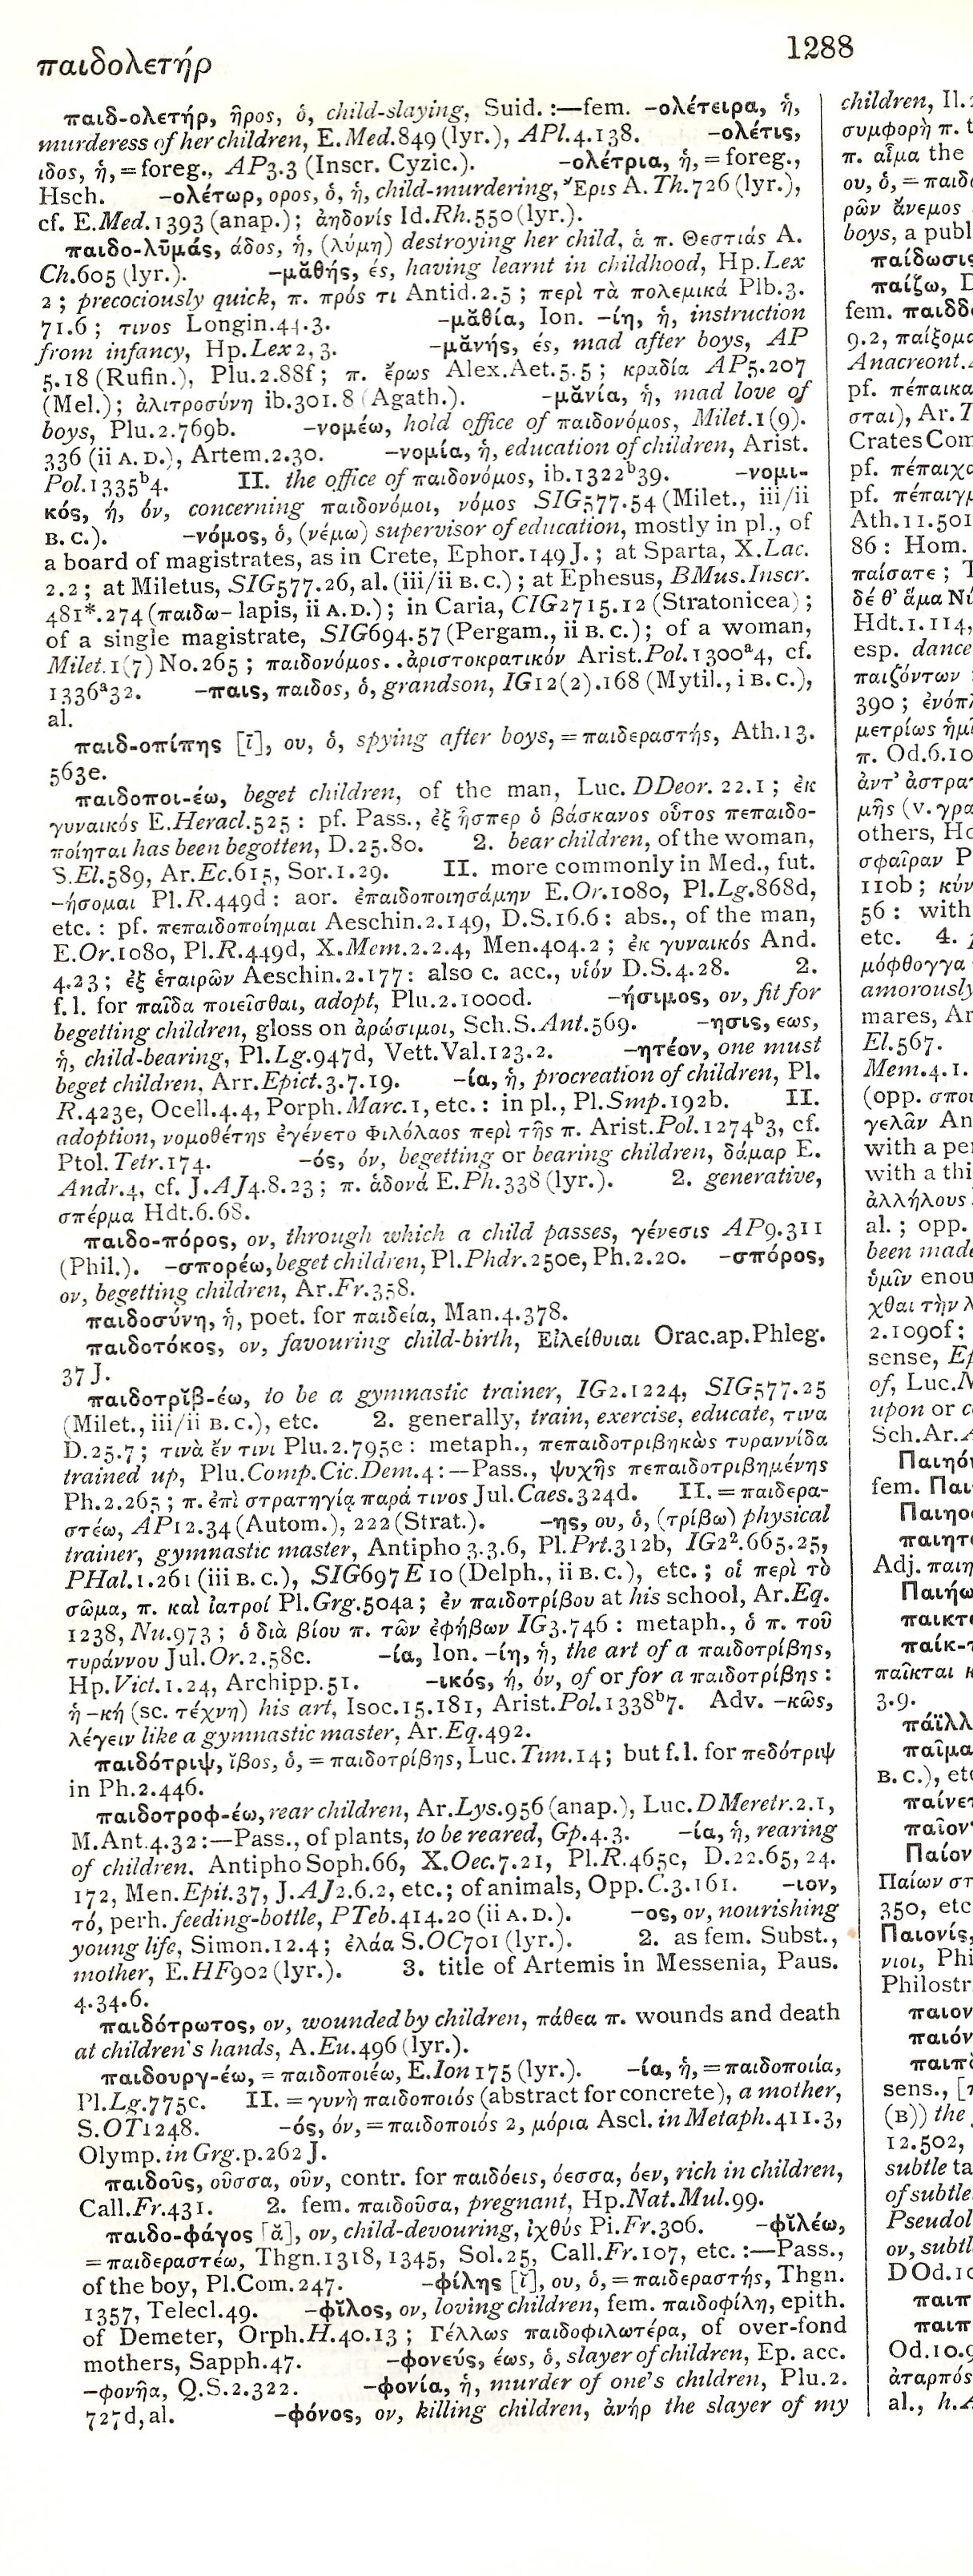 παιδολετήρ
1288
παιδ-ολετήρ, ῆρος, ὁ, child-slaying, Suid. :—fem. -ολέτειρα, ἡ,
murderess of her children, E.Med.849 (lyr.), APl.4.138. -ολέτις,
ιδος, ἡ, = foreg., AP3.3 (Inscr. Cyzic.). -ολέτρια, ἡ, = foreg.,
Hsch. -ολέτωρ, ορος, ὁ, ἡ, child-murdering, Ἔρις A. Th.726 (lyr.),
cf. E.Med.1393 (anap.); ἀηδονίς Id.Rh.550 (lyr.).
παιδο-λῡμάς, άδος, ἡ, (λύμη) destroying her child, ἁ π. Θεστιάς A.
Ch.605 (lyr.). -μᾰθής, ές, having learnt in childhood, Hp.Lex
2 ; precociously quick, π. πρός τι Antid.2.5 ; περὶ τὰ πολεμικά Plb.3.
71.6 ; τινος Longin.44.3. -μᾰθία, Ion. -ίη, ἡ, instruction
from infancy, Hp.Lex 2, 3. -μᾰνής, ές, mad after boys, AP
5.18 (Rufin.), Plu.2.88f ; π. ἔρως Alex.Aet.5.5 ; κραδία AP5.207
(Mel.); ἀλιτροσύνη ib.301.8 (Agath.). -μᾰνία, ἡ, mad love of
boys, Plu.2.769b. -νομέω, hold office of παιδονόμος, Milet.1(9).
336 (ii A. D.), Artem.2.30. -νομία, ἡ, education of children, Arist.
Pol.1335ᵇ4. II. the office of παιδονόμος, ib.1322ᵇ39. -νομι-
κός, ή, όν, concerning παιδονόμοι, νόμος SIG577.54 (Milet., iii/ii
B. C.). -νόμος, ὁ, (νέμω) supervisor of education, mostly in pl., of
a board of magistrates, as in Crete, Ephor.149 J. ; at Sparta, X.Lac.
2.2 ; at Miletus, SIG577.26, al. (iii/ii B. C.) ; at Ephesus, BMus.Inscr.
481*.274 (παιδω- lapis, ii A. D.) ; in Caria, CIG2715.12 (Stratonicea) ;
of a single magistrate, SIG694.57 (Pergam., ii B. C.) ; of a woman,
Milet.1(7) No.265 ; παιδονόμος . . ἀριστοκρατικόν Arist.Pol.1300ᵃ4, cf.
1336ᵃ32. -παις, παιδος, ὁ, grandson, IG12(2).168 (Mytil., i B. C.),
al.
παιδ-οπίπης [ῑ], ου, ὁ, spying after boys, = παιδεραστής, Ath.13.
563e.
παιδοποι-έω, beget children, of the man, Luc. DDeor. 22.1 ; ἐκ
γυναικός E.Heracl.525 : pf. Pass., ἐξ ἧσπερ ὁ βάσκανος οὗτος πεπαιδο-
ποίηται has been begotten, D.25.80. 2. bear children, of the woman,
S.El.589, Ar.Ec.615, Sor.1.29. II. more commonly in Med., fut.
-ήσομαι Pl.R.449d : aor. ἐπαιδοποιησάμην E.Or.1080, Pl.Lg.868d,
etc. : pf. πεπαιδοποίημαι Aeschin.2.149, D.S.16.6 : abs., of the man,
E.Or.1080, Pl.R.449d, X.Mem.2.2.4, Men.404.2 ; ἐκ γυναικός And.
4.23 ; ἐξ ἑταιρῶν Aeschin.2.177 : also c. acc., υἱόν D.S.4.28. 2.
f. l. for παῖδα ποιεῖσθαι, adopt, Plu.2.1000d. -ήσιμος, ον, fit for
begetting children, gloss on ἀρώσιμοι, Sch.S.Ant.569. -ησις, εως,
ἡ, child-bearing, Pl.Lg.947d, Vett.Val.123.2. -ητέον, one must
beget children, Arr.Epict.3.7.19. -ία, ἡ, procreation of children, Pl.
R.423e, Ocell.4.4, Porph.Marc.1, etc. : in pl., Pl.Smp.192b. II.
adoption, νομοθέτης ἐγένετο Φιλόλαος περὶ τῆς π. Arist.Pol.1274ᵇ3, cf.
Ptol.Tetr.174. -ός, όν, begetting or bearing children, δάμαρ E.
Andr.4, cf. J.AJ4.8.23 ; π. ἁδονά E.Ph.338 (lyr.). 2. generative,
σπέρμα Hdt.6.68.
παιδο-πόρος, ον, through which a child passes, γένεσις AP9.311
(Phil.). -σπορέω, beget children, Pl.Phdr.250e, Ph.2.20. -σπόρος,
ον, begetting children, Ar.Fr.358.
παιδοσύνη, ἡ, poet. for παιδεία, Man.4.378.
παιδοτόκος, ον, favouring child-birth, Εἰλείθυιαι Orac.ap.Phleg.
37 J.
παιδοτρῐβ-έω, to be a gymnastic trainer, IG2.1224, SIG577.25
(Milet., iii/ii B. C.), etc. 2. generally, train, exercise, educate, τινα
D.25.7 ; τινὰ ἔν τινι Plu.2.795e : metaph., πεπαιδοτριβηκὼς τυραννίδα
trained up, Plu.Comp.Cic.Dem.4 :—Pass., ψυχῆς πεπαιδοτριβημένης
Ph.2.265 ; π. ἐπὶ στρατηγίᾳ παρά τινος Jul.Caes.324d. II. = παιδερα-
στέω, AP12.34 (Autom.), 222 (Strat.). -ης, ου, ὁ, (τρίβω) physical
trainer, gymnastic master, Antipho 3.3.6, Pl.Prt.312b, IG2².665.25,
PHal.1.261 (iii B. C.), SIG697 E 10 (Delph., ii B. C.), etc. ; οἱ περὶ τὸ
σῶμα, π. καὶ ἰατροί Pl.Grg.504a ; ἐν παιδοτρίβου at his school, Ar.Eq.
1238, Nu.973 ; ὁ διὰ βίου π. τῶν ἐφήβων IG3.746 : metaph., ὁ π. τοῦ
τυράννου Jul.Or.2.58c. -ία, Ion. -ίη, ἡ, the art of a παιδοτρίβης,
Hp.Vict.1.24, Archipp.51. -ικός, ή, όν, of or for a παιδοτρίβης :
ἡ -κή (sc. τέχνη) his art, Isoc.15.181, Arist.Pol.1338ᵇ7. Adv. -κῶς,
λέγειν like a gymnastic master, Ar.Eq.492.
παιδότριψ, ῐβος, ὁ, = παιδοτρίβης, Luc.Tim.14; but f.l. for πεδότριψ
in Ph.2.446.
παιδοτροφ-έω, rear children, Ar.Lys.956 (anap.), Luc.DMeretr.2.1,
M.Ant.4.32 :—Pass., of plants, to be reared, Gp.4.3. -ία, ἡ, rearing
of children, Antipho Soph.66, X.Oec.7.21, Pl.R.465c, D.22.65, 24.
172, Men.Epit.37, J.AJ2.6.2, etc.; of animals, Opp.C.3.161. -ιον,
τό, perh. feeding-bottle, PTeb.414.20 (ii A. D.). -ος, ον, nourishing
young life, Simon.12.4; ἐλάα S.OC701 (lyr.). 2. as fem. Subst.,
mother, E.HF902 (lyr.). 3. title of Artemis in Messenia, Paus.
4.34.6.
παιδότρωτος, ον, wounded by children, πάθεα π. wounds and death
at children's hands, A.Eu.496 (lyr.).
παιδουργ-έω, = παιδοποιέω, E.Ion 175 (lyr.). -ία, ἡ, = παιδοποιία,
Pl.Lg.775c. II. = γυνὴ παιδοποιός (abstract for concrete), a mother,
S.OT1248. -ός, όν, = παιδοποιός 2, μόρια Ascl. in Metaph.411.3,
Olymp. in Grg.p.262 J.
παιδοῦς, οῦσσα, οῦν, contr. for παιδόεις, όεσσα, όεν, rich in children,
Call.Fr.431. 2. fem. παιδοῦσα, pregnant, Hp.Nat.Mul.99.
παιδο-φάγος [ᾰ], ον, child-devouring, ἰχθύς Pi.Fr.306. -φῐλέω,
= παιδεραστέω, Thgn.1318, 1345, Sol.25, Call.Fr.107, etc. :—Pass.,
of the boy, Pl.Com.247. -φίλης [ῐ], ου, ὁ, = παιδεραστής, Thgn.
1357, Telecl.49. -φῐλος, ον, loving children, fem. παιδοφίλη, epith.
of Demeter, Orph.H.40.13 ; Γέλλως παιδοφιλωτέρα, of over-fond
mothers, Sapph.47. -φονεύς, έως, ὁ, slayer of children, Ep. acc.
-φονῆα, Q.S.2.322. -φονία, ἡ, murder of one's children, Plu.2.
727d, al. -φόνος, ον, killing children, ἀνήρ the slayer of my
children, Il.
συμφορὴ π.
π. αἷμα the
ου, ὁ, = παιδ
ρῶν ἄνεμος
boys, a publ
παίδωσις
παίζω,
fem. παιδδ
9.2, παίξομ
Anacreont.
pf. πέπαικα
σται), Ar.
Crates Com
pf. πέπαιχ
pf. πέπαιγμ
Ath.11.501
86 : Hom.
παίσατε ;
δέ θ' ἅμα Νύ
Hdt.1.114,
esp. dance
παιζόντων
390 ; ἐνόπ
μετρίως ἠμ
π. Od.6.10
ἀντ' ἀστρα
μῆς (v. γρα
others, Ho
σφαῖραν
110b ; κύν
56 : with
etc. 4.
μόφθογγα
amorously
mares, Ar
El.567.
Mem.4.1.
(opp. σπου
γελᾶν An
with a per
with a thi
ἀλλήλους
al. ; opp.
been made
ὑμῖν enou
χθαι τὴν
2.1090f ;
sense, Ep
of, Luc.
upon or
Sch.Ar.
Παιηό
fem. Παι
Παιηο
παιητ
Adj. παιη
Παιήω
παικτ
παίκ-
παῖκται
3.9.
πάϊλλ
παῖμα
B. C.), et
παίνετ
παῖον
Παίον
Παίων
350, etc
Παιονίς,
νιοι, Phi
Philostr
παιον
παιόν
παιπ
sens.,
(B)) the
12.502,
subtle ta
of subtle
Pseudol
ον, subtl
D Od.10
παιπ
παιπ
Od.10.9
ἀταρπός
al., h.